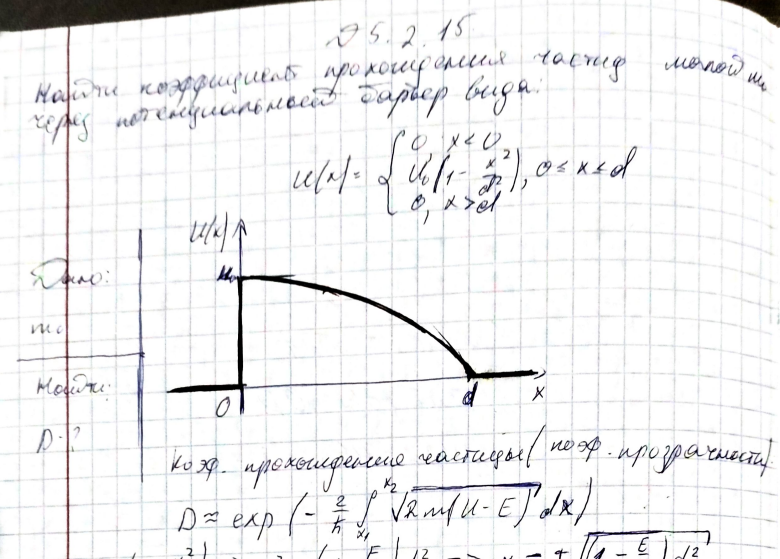 № 5.2.15
Найти коэффициент прохождения частиц массой m₀
через потенциальный барьер вида:
U(x) = { 0, x < 0
U₀(1 - x²/d²), 0 ≤ x ≤ d
0, x > d
U(x)
U₀
0
d
x
Дано:
m₀
Найти:
D-?
Коэф. прохождение частицы (коэф. прозрачности)
D ≈ exp(-2/ħ ∫ₓ₁ˣ² √2m(U-E) dx)